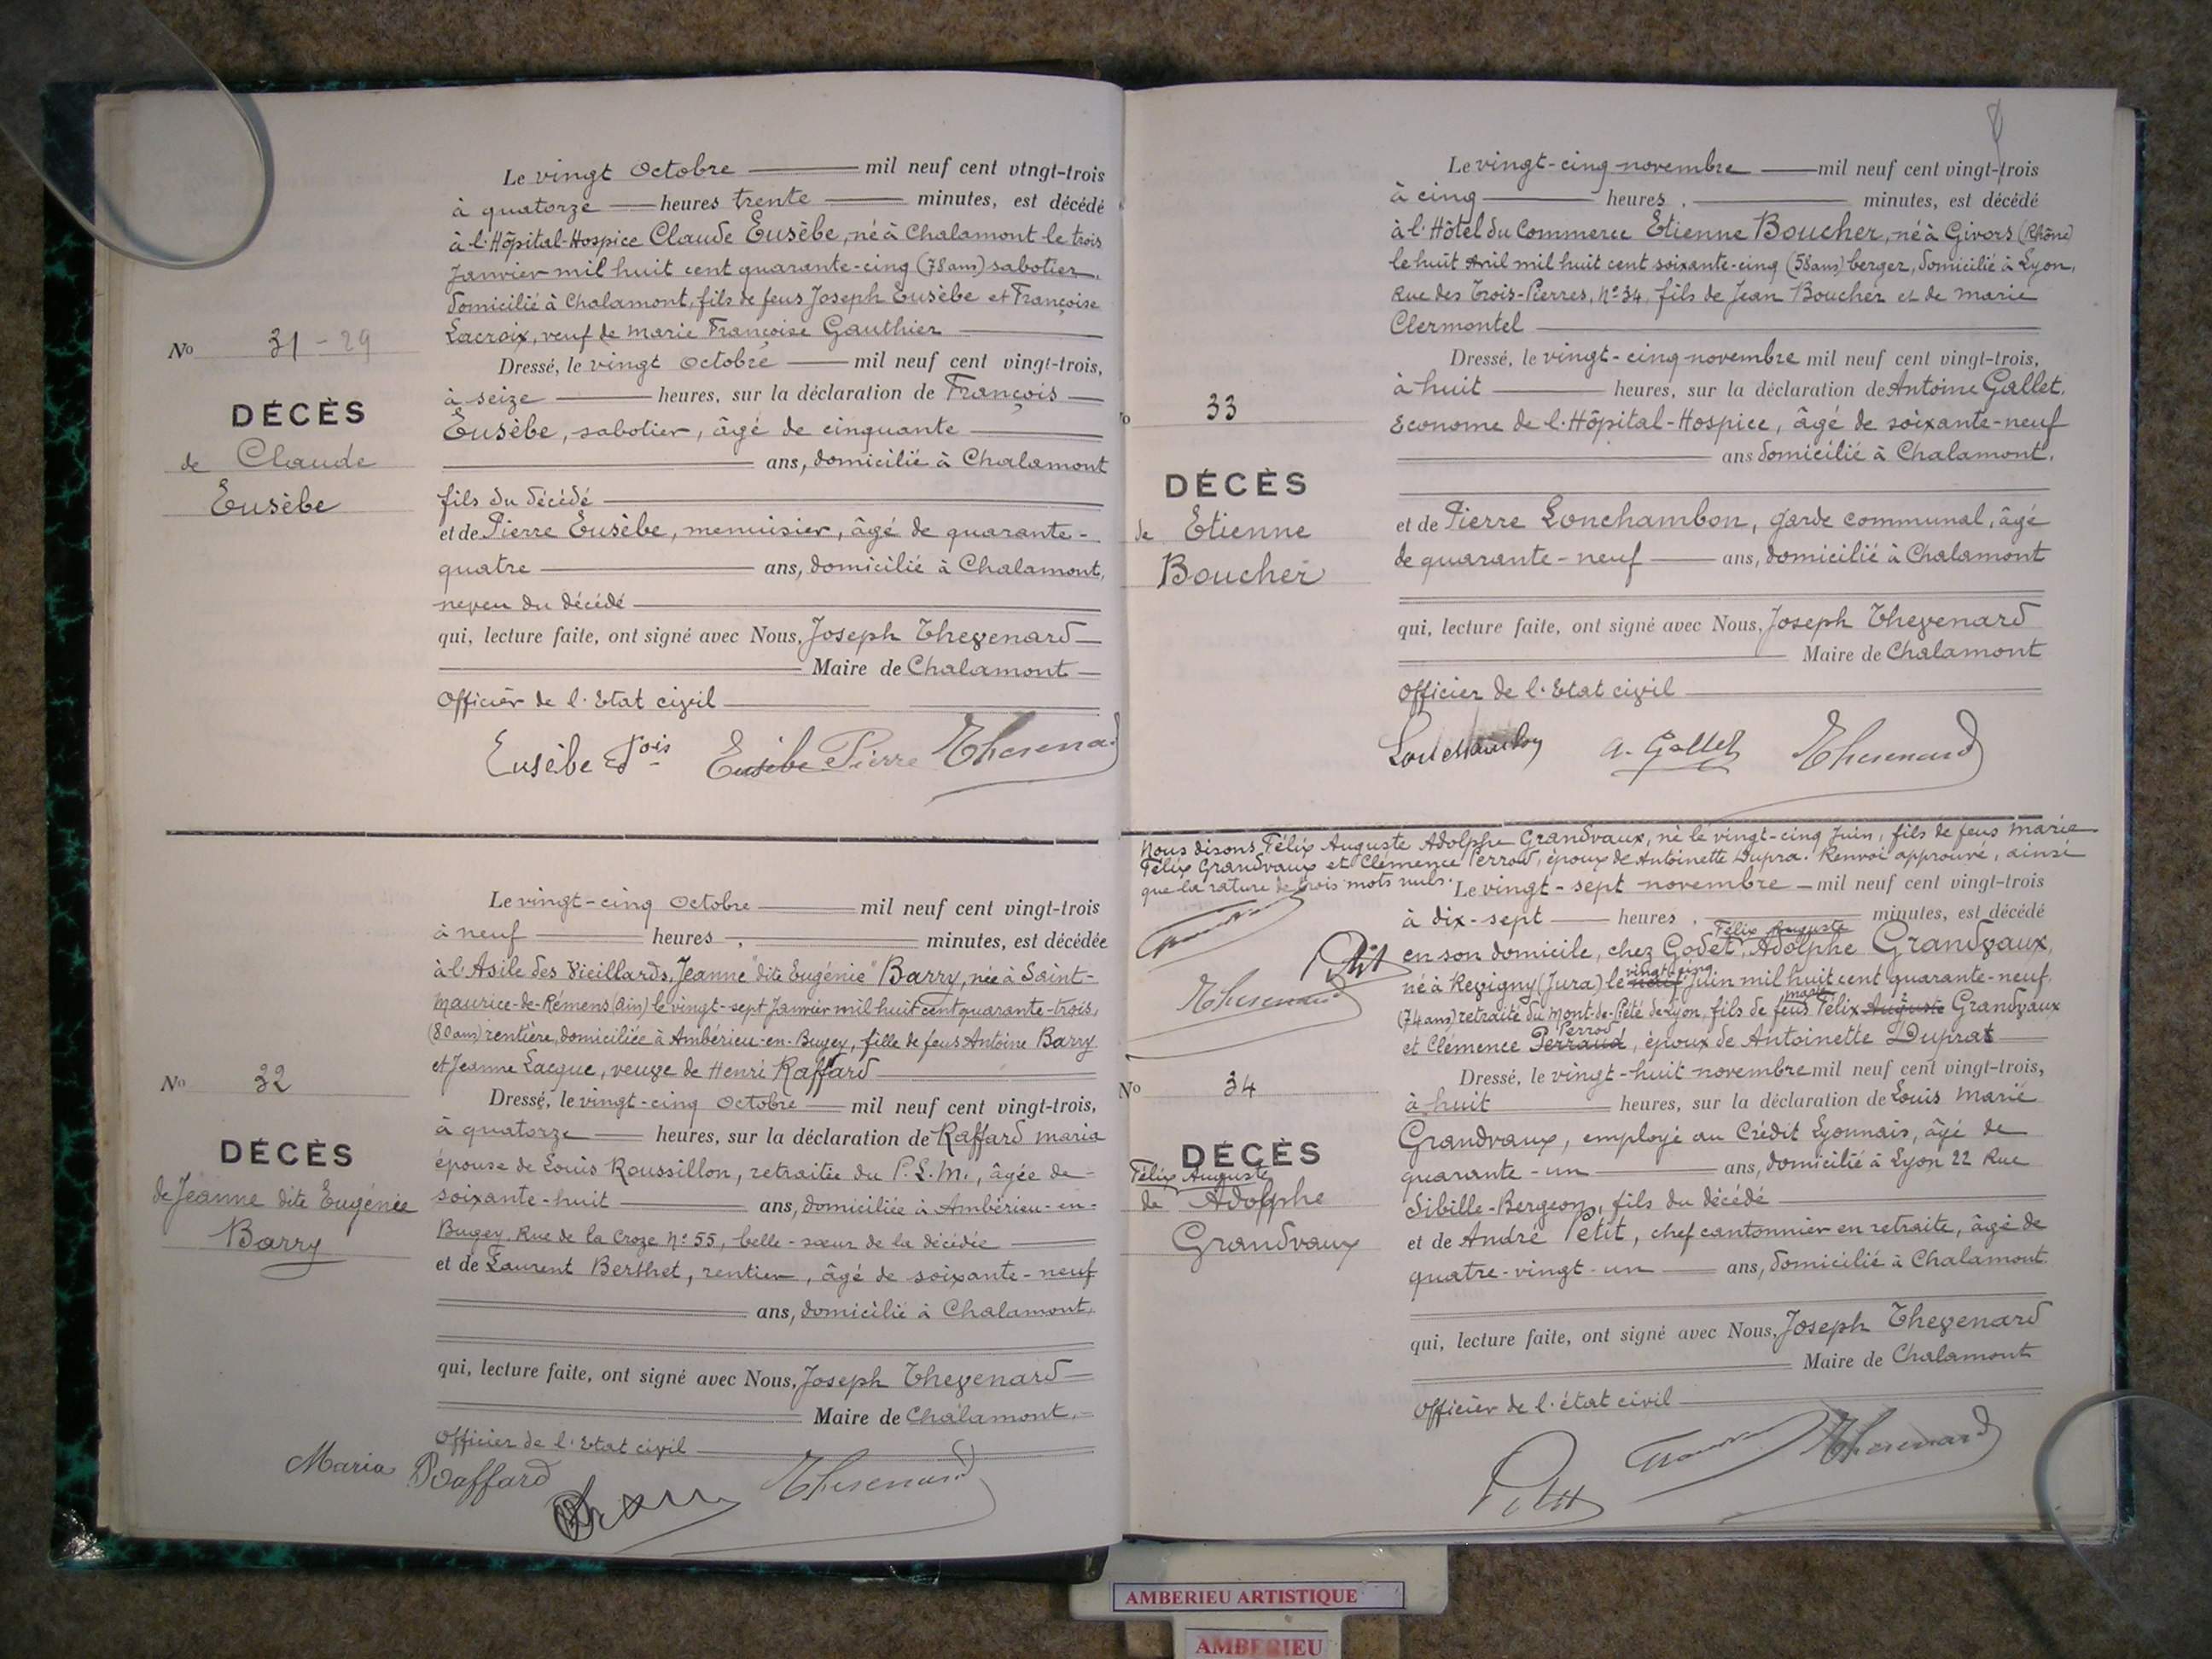 Le vingt Octobre mil neuf cent vingt-trois
à quatorze heures trente minutes, est décédé
à l'Hôpital-Hospice Claude Eusèbe, né à Chalamont le trois
Janvier mil huit cent quarante-cinq (78 ans) sabotier,
domicilié à Chalamont, fils de feus Joseph Eusèbe et Françoise
Lacroix, veuf de Marie Françoise Gauthier
No 31 - 29
DÉCÈS
de Claude
Eusèbe
Dressé, le vingt Octobre mil neuf cent vingt-trois,
à seize heures, sur la déclaration de François
Eusèbe, sabotier, âgé de cinquante
ans, domicilié à Chalamont
fils du décédé
et de Pierre Eusèbe, menuisier, âgé de quarante-
quatre ans, domicilié à Chalamont,
neveu du décédé
qui, lecture faite, ont signé avec Nous, Joseph Thevenard
Maire de Chalamont
Officier de l'Etat civil
Eusèbe Fois Eusèbe Pierre Thevenard
Le vingt-cinq Octobre mil neuf cent vingt-trois
à neuf heures, minutes, est décédée
à l'Asile des Vieillards, Jeanne "dite Eugénie" Barry, née à Saint-
Maurice-de-Rémens (Ain) le vingt-sept Janvier mil huit cent quarante-trois,
(80 ans) rentière, domiciliée à Ambérieu-en-Bugey, fille de feus Antoine Barry
et Jeanne Lacque, veuve de Henri Raffard
No 32
DÉCÈS
de Jeanne dite Eugénie
Barry
Dressé, le vingt-cinq Octobre mil neuf cent vingt-trois,
à quatorze heures, sur la déclaration de Raffard Maria
épouse de Louis Roussillon, retraitée du P.L.M., âgée de
soixante-huit ans, domiciliée à Ambérieu-en-
Bugey. Rue de la Croze No 55, belle-sœur de la décédée
et de Laurent Berthet, rentier, âgé de soixante-neuf
ans, domicilié à Chalamont,
qui, lecture faite, ont signé avec Nous, Joseph Thevenard
Maire de Chalamont,
Officier de l'Etat civil
Maria Raffard Thevenard
Le vingt-cinq novembre mil neuf cent vingt-trois
à cinq heures, minutes, est décédé
à l'Hôtel du Commerce Etienne Boucher, né à Givors (Rhône)
le huit Avril mil huit cent soixante-cinq (58 ans) berger, domicilié à Lyon,
Rue des Trois-Pierres, No 34, fils de Jean Boucher et de Marie
Clermontel
33
DÉCÈS
de Etienne
Boucher
Dressé, le vingt-cinq novembre mil neuf cent vingt-trois,
à huit heures, sur la déclaration de Antoine Gallet,
Econome de l'Hôpital-Hospice, âgé de soixante-neuf
ans domicilié à Chalamont,
et de Pierre Lonchambon, garde communal, âgé
de quarante-neuf ans, domicilié à Chalamont
qui, lecture faite, ont signé avec Nous, Joseph Thevenard
Maire de Chalamont
Officier de l'Etat civil
Lonchambon A. Gallet Thevenard
Nous disons Félix Auguste Adolphe Grandvaux, né le vingt-cinq Juin, fils de feus Marie
Félix Grandvaux et Clémence Perrod, époux de Antoinette Dupra. Renvoi approuvé, ainsi
que la rature de trois mots nuls.
Petit
Thevenard
Le vingt-sept novembre mil neuf cent vingt-trois
à dix-sept heures, minutes, est décédé
Félix Auguste
en son domicile, chez Godet, Adolphe Grandvaux,
vingt-cinq
né à Revigny (Jura) le neuf Juin mil huit cent quarante-neuf,
Marie
(74 ans) retraité du Mont-de-Piété de Lyon, fils de feus Félix Auguste Grandvaux
Perrod
et Clémence Perraud, époux de Antoinette Duprat
No 34
DÉCÈS
Félix Auguste
de Adolphe
Grandvaux
Dressé, le vingt-huit novembre mil neuf cent vingt-trois,
à huit heures, sur la déclaration de Louis Marie
Grandvaux, employé au Crédit Lyonnais, âgé de
quarante-un ans, domicilié à Lyon 22 Rue
Sibille-Bergeon, fils du décédé
et de André Petit, chef cantonnier en retraite, âgé de
quatre-vingt-un ans, domicilié à Chalamont
qui, lecture faite, ont signé avec Nous, Joseph Thevenard
Maire de Chalamont
Officier de l'état civil
Petit Thevenard
AMBERIEU ARTISTIQUE
AMBERIEU